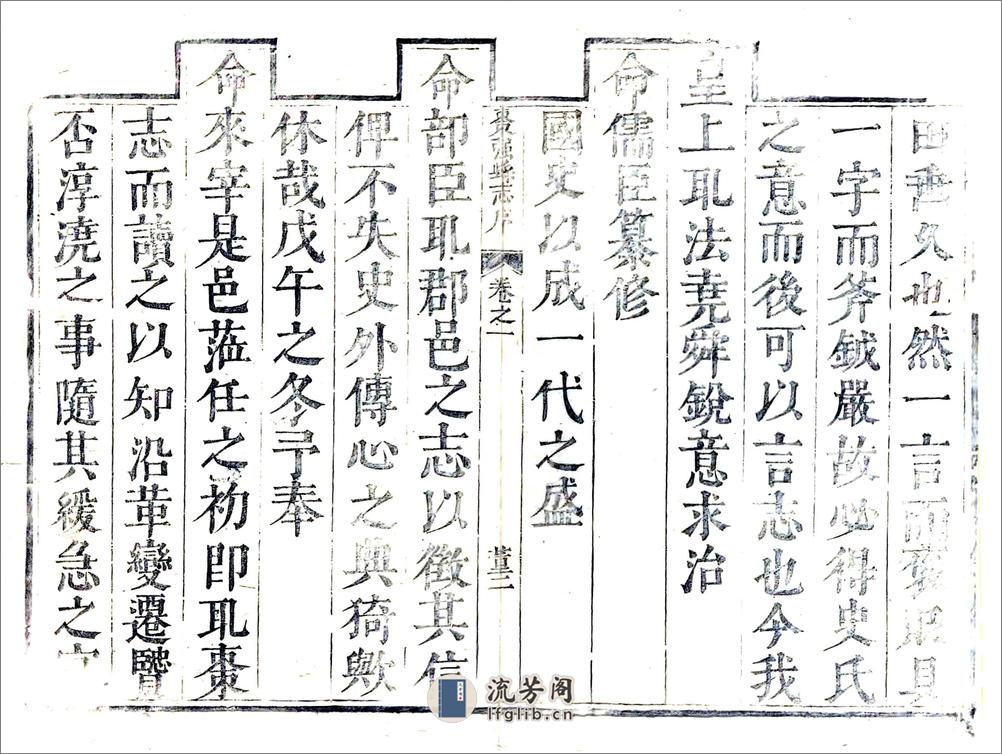 世久也然一言而褒貶具
一字而斧鉞嚴故必得史氏
之意而後可以言志也今我
皇上耴法堯舜銳意求治
命儒臣纂修
國史以成一代之盛
棗强縣志序 卷之一 董二
命部臣耴郡邑之志以徵其信
俾不失史外傳心之典猗歟
休哉戊午之冬予奉
命來宰是邑蒞任之初即耴棗
志而讀之以知沿革變遷覽
否淳澆之事隨其緩急之
流芳阁
lfglib.cn